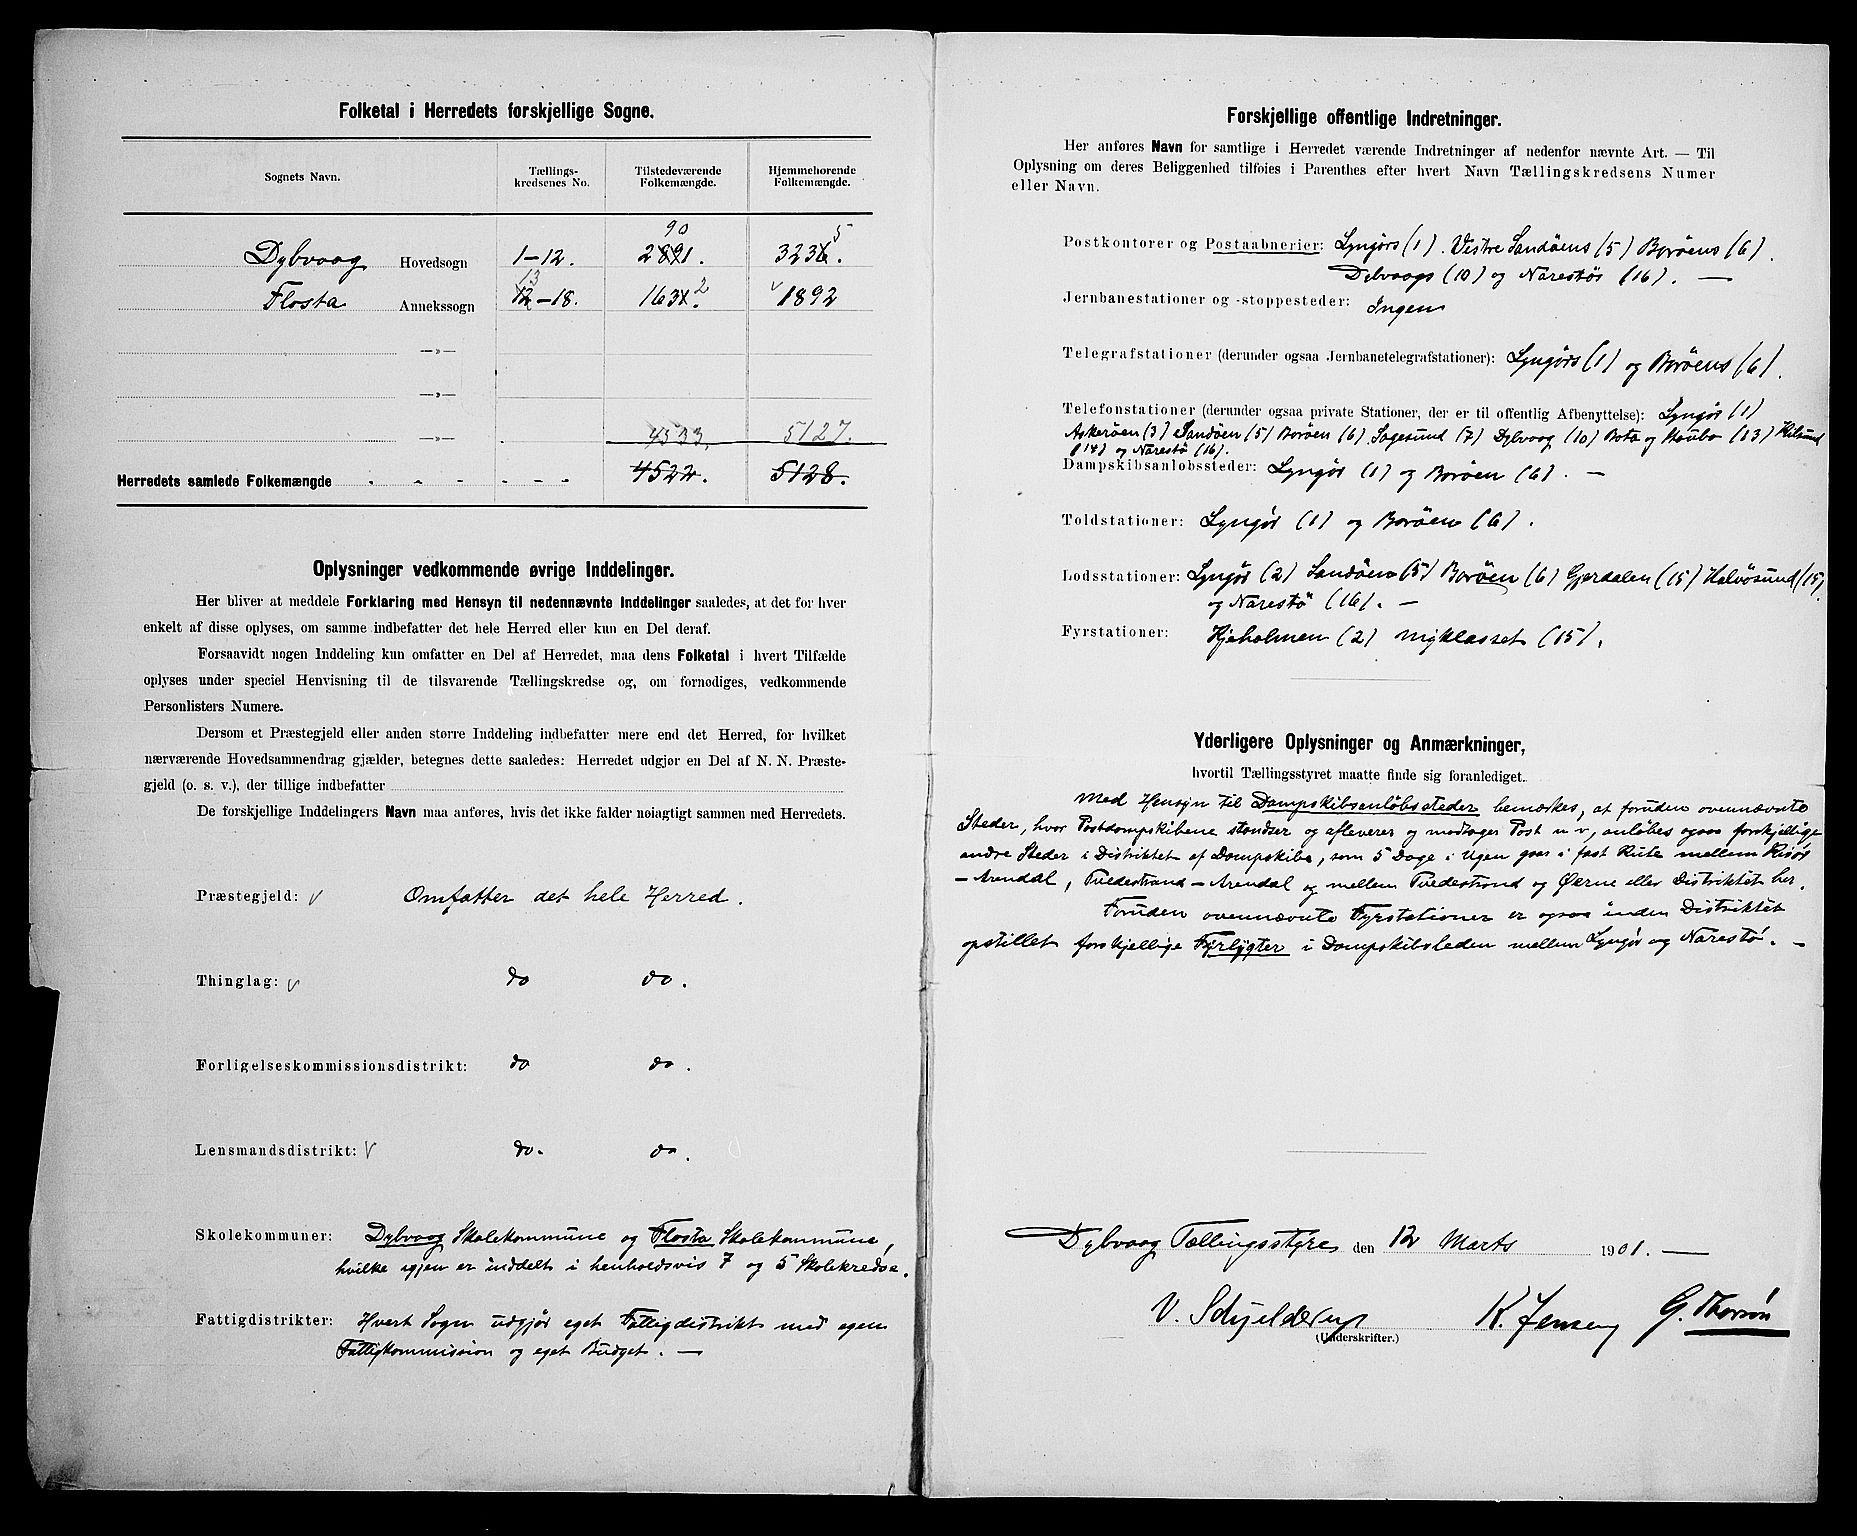 Folketal i Herredets forskjellige Sogne.
Sognets Navn.
Tællings-
kredsenes No.
Tilstedeværende
Folkemængde.
Hjemmehørende
Folkemængde.
90 5
Dybvaag Hovedsogn 1-12. 2891. 3236.
13 2
Flosta Annekssogn 12-18. 1631. v 1892
—»—
—»—
—»— 4533. 5127.
Herredets samlede Folkemængde 4522. 5128.
Oplysninger vedkommende øvrige Inddelinger.
Her bliver at meddele Forklaring med Hensyn til nedennævnte Inddelinger saaledes, at det for hver
enkelt af disse oplyses, om samme indbefatter det hele Herred eller kun en Del deraf.
Forsaavidt nogen Inddeling kun omfatter en Del af Herredet, maa dens Folketal i hvert Tilfælde
oplyses under speciel Henvisning til de tilsvarende Tællingskredse og, om fornødiges, vedkommende
Personlisters Numere.
Dersom et Præstegjeld eller anden større Inddeling indbefatter mere end det Herred, for hvilket
nærværende Hovedsammendrag gjælder, betegnes dette saaledes: Herredet udgjør en Del af N. N. Præste-
gjeld (o. s. v.), der tillige indbefatter
De forskjellige Inddelingers Navn maa anføres, hvis det ikke falder nøiagtigt sammen med Herredets.
Præstegjeld: v Omfatter det hele Herred.
Thinglag: v do do.
Forligelseskommissionsdistrikt: do do.
Lensmandsdistrikt: v do. do.
Skolekommuner: Dybvaag Skolekommune og Flosta Skolekommune,
hvilke igjen er inddelt i henholdsvis 7 og 5 Skolekredse.
Fattigdistrikter: Hvert Sogn udgjør eget Fattigdistrikt med egen
Fattigkommission og eget Budget. —
Forskjellige offentlige Indretninger.
Her anføres Navn for samtlige i Herredet værende Indretninger af nedenfor nævnte Art. — Til
Oplysning om deres Beliggenhed tilføies i Parenthes efter hvert Navn Tællingskredsens Numer
eller Navn.
Postkontorer og Postaabnerier: Lyngørs (1). Vestre Sandøens (5) Borøens (6).
Dybvaags (10) og Narestøs (16). —
Jernbanestationer og -stoppesteder: Ingen
Telegrafstationer (derunder ogsaa Jernbanetelegrafstationer): Lyngørs (1) og Borøens (6).
Telefonstationer (derunder ogsaa private Stationer, der er til offentlig Afbenyttelse): Lyngør (1)
Askerøen (3) Sandøen (5) Borøen (6) Sagesund (7) Dybvaag (10) Bota og Staubo (13) Kilsund
(14) og Narestø (16).
Dampskibsanløbssteder: Lyngør (1) og Borøen (6). —
Toldstationer: Lyngør (1) og Borøen (6).
Lodsstationer: Lyngør (2) Sandøen (5) Borøen (6) Gjerdalen (15) Halvøsund (15)
og Narestø (16). —
Fyrstationer: Kjeholmen (2) Myklasset (15).
Yderligere Oplysninger og Anmærkninger,
hvortil Tællingsstyret maatte finde sig foranlediget.
Med Hensyn til Dampskibsanløbssteder bemærkes, at foruden ovennævnte
Steder, hvor Postdampskibene standser og afleverer og modtager Post u v, anløbes ogsaa forskjellige
andre Steder i Distriktet af Dampskibe, som 5 Dage i Ugen gaar i fast Rute mellem Risør
— Arendal, Tvedestrand — Arendal og mellem Tvedestrand og Øerne eller Distriktet her.
Foruden ovennævnte Fyrstationer er ogsaa inden Distriktet
opstillet forskjellige Fyrlygter i Dampskibsleden mellem Lyngør og Narestø. —
Dybvaag Tællingsstyre den 12 Marts 1901. —
V. Schjelderup K. Jensen G. Thorsøn
(Underskrifter.)